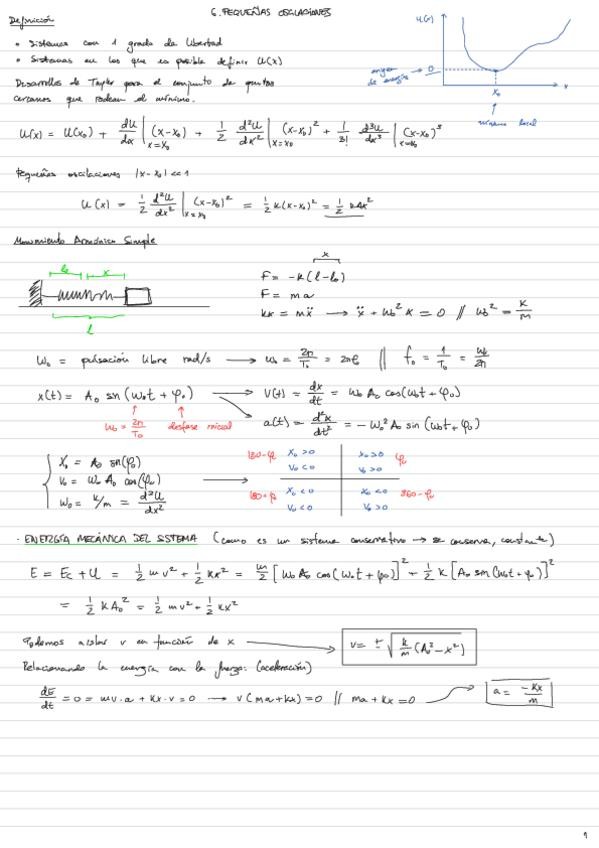 6. PEQUEÑAS OSCILACIONES
Definición
• Sistemas con 1 grado de libertad
• Sistemas en los que es posible definir U(x)
Desarrollo de Taylor para el conjunto de puntos
cercanos que rodean el mínimo.
U(x)
origen de energía
0
x₀
x
mínimo local
U(x) = U(x₀) + dU/dx |x=x₀ (x-x₀) + 1/2 d²U/dx² |x=x₀ (x-x₀)² + 1/3! d³U/dx³ |x=x₀ (x-x₀)³
Pequeñas oscilaciones |x-x₀| <<1
U(x) = 1/2 d²U/dx² |x=x₀ (x-x₀)² = 1/2 k(x-x₀)² = 1/2 kΔx²
Movimiento Armónico Simple
l₀ x
l
x
F = -k(l-l₀)
F = ma
kx = mẍ → ẍ + ω₀² x = 0 // ω₀² = k/m
ω₀ = pulsación libre rad/s → ω₀ = 2π/T₀ = 2πf₀ // f₀ = 1/T₀ = ω₀/2π
x(t) = A₀ sen(ω₀t + φ₀) → v(t) = dx/dt = ω₀ A₀ cos(ω₀t + φ₀)
ω₀ = 2π/T₀ desfase inicial a(t) = d²x/dt² = -ω₀² A₀ sin(ω₀t + φ₀)
x₀ = A₀ sen(φ₀)
v₀ = ω₀ A₀ cos(φ₀)
ω₀ = k/m = d²U/dx²
180-φ₀ x₀ > 0 v₀ < 0
x₀ > 0 v₀ > 0 φ₀
180+φ₀ x₀ < 0 v₀ < 0
x₀ < 0 v₀ > 0 360-φ₀
· ENERGÍA MECÁNICA DEL SISTEMA (como es un sistema conservativo → se conserva, constante)
E = Ec + U = 1/2 m v² + 1/2 kx² = m/2 [ω₀ A₀ cos(ω₀t + φ₀)]² + 1/2 k [A₀ sin(ω₀t + φ₀)]²
= 1/2 k A₀² = 1/2 mv² + 1/2 kx²
Podemos aislar v en función de x → v = ± √(k/m (A₀² - x²))
Relacionando la energía con la fuerza: (aceleración)
dE/dt = 0 = mv·a + kx·v = 0 → v(ma+kx) = 0 // ma + kx = 0 → a = -kx/m
1